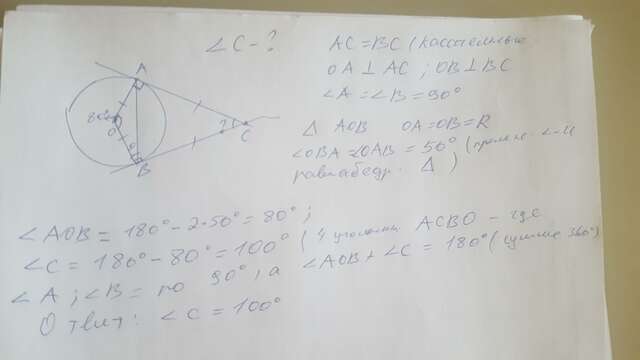 ∠C - ?
A
80°
O
B
2
C
AC = BC (касательные
OA ⊥ AC ; OB ⊥ BC
∠A = ∠B = 90°
Δ AOB OA = OB = R
∠OBA = ∠OAB = 50° (
равнобедр. Δ )
∠AOB = 180° - 2·50° = 80° ;
∠C = 180° - 80° = 100° ( 4 угольник ACBO - где
∠A ; ∠B = по 90°, а ∠AOB + ∠C = 180° (сумма 360°)
Ответ: ∠C = 100°